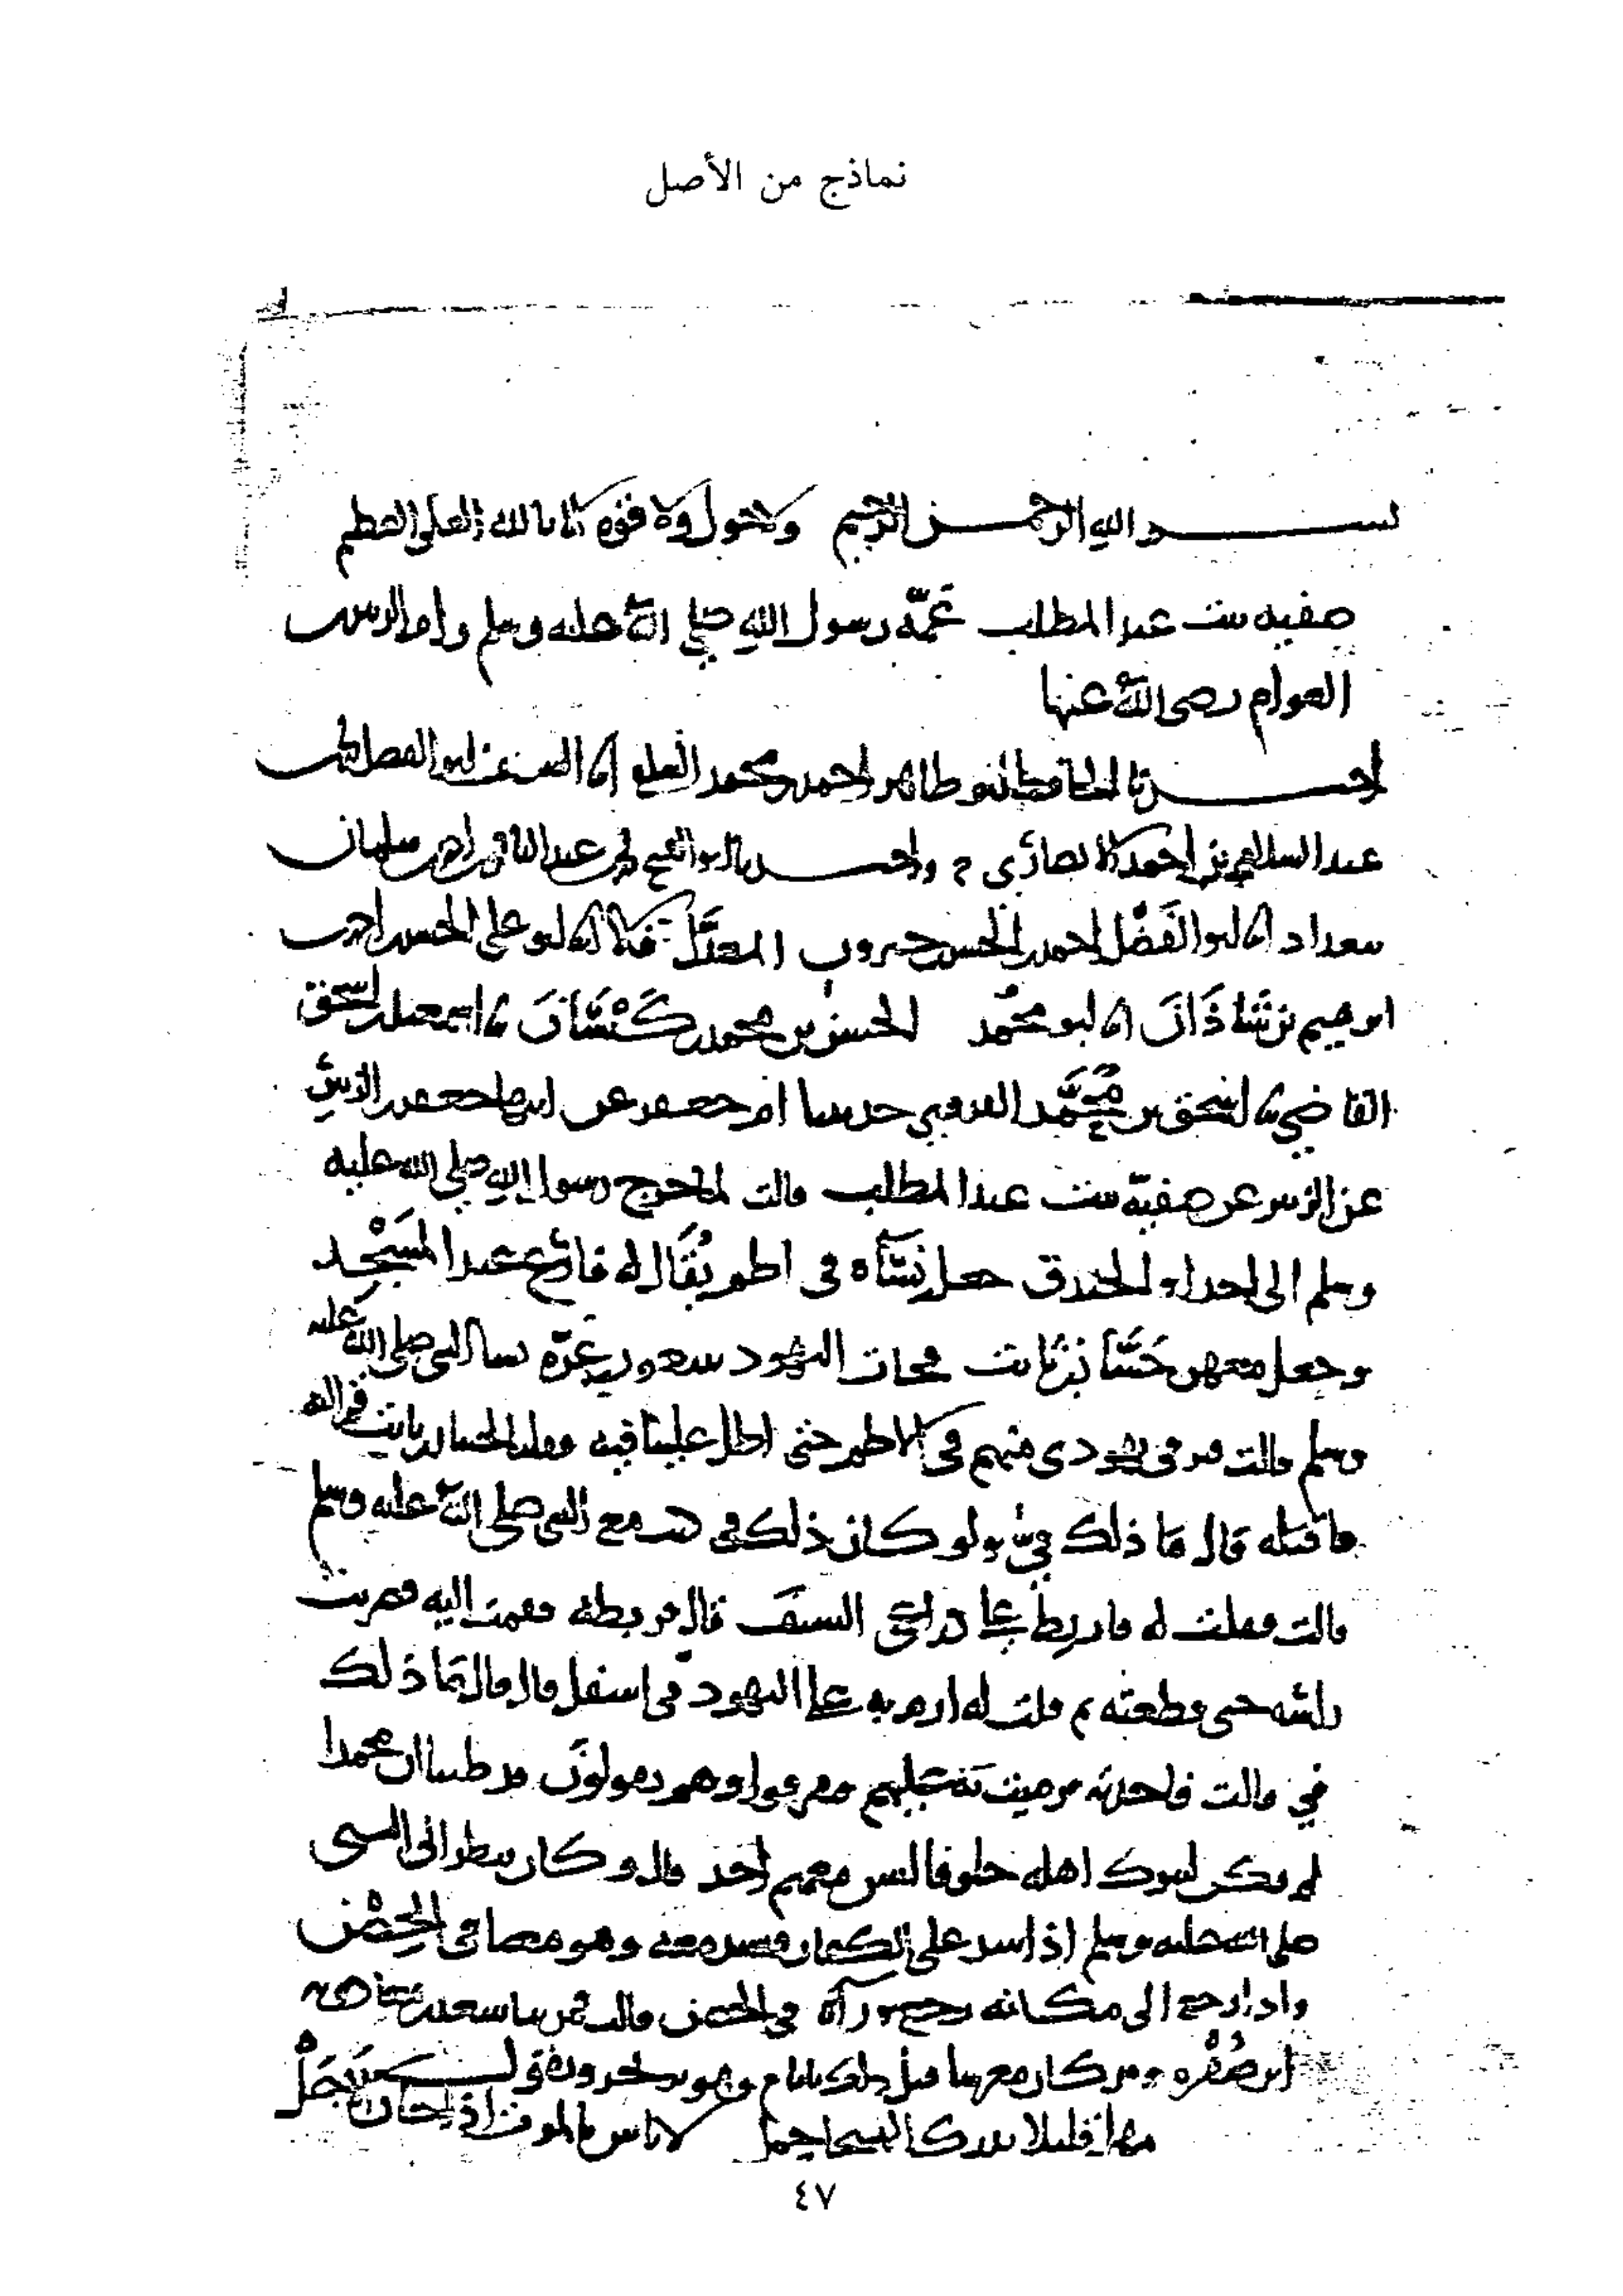 نماذج من الأصل
بسم الله الرحمن الرحيم ولا حول ولا قوة الا بالله العلي العظيم
صفيه بنت عبد المطلب عمّة رسول الله صلى الله عليه وسلم وام الزبير بن
العوام رضى الله عنها
اخبرنا الحافظ ابو طاهر احمد بن محمد السلفي انا الشريف ابو الفضل محمد بن
عبد السلام بن احمد الانصاري ح واخبرنا ابو الفتح محمد بن عبد الباقي بن احمد بن سلمان
ببغداد انا ابو الفضل احمد بن الحسن بن خيرون المعدّل قالا انا ابو علي الحسن بن احمد بن
ابرهيم بن شاذان انا ابو محمد الحسن بن محمد بن كيسان نا اسمعيل بن اسحق
القاضي نا اسحق بن محمد الفروي حدثتنا ام جعفر عن ابيها جعفر بن الزبير
عن الزبير عن صفيّة بنت عبد المطلب قالت لما خرج رسول الله صلى الله عليه
وسلم الى احد او الخندق جعل نساه في اطم يقال له فارع عند المسجد
وجعل معهن حسان بن ثابت فجات اليهود نسا النبي صلى الله عليه
وسلم قالت فرقى يهودي منهم في الاطم حتى اطل علينا فيه فقلت لحسان بن ثابت قم اليه
فاقتله قال ما ذلك فيّ ولو كان ذلك في كنت مع النبي صلى الله عليه وسلم
قالت فقلت له فاربط على ذراعي السيف قال فربطه فقمت اليه فضربت
راسه حتى قطعته ثم قلت له ارم به على اليهود في اسفل قال قال ما ذلك
في قالت فاخذته فرميت به عليهم فتفرقوا وهم يقولون قد ظننا ان محمدا
لم يكن ليترك اهله خلوفا ليس معهم احد قال وكان ينظر الى النبي
صلى الله عليه وسلم اذا شد على الكفار فيشد معه وهو معنا في الحصن
واذا رجع الى مكانه رجع وراه في الحصن قالت فمر بنا سعد بن معاذ وبه
اثر صفره ومن كان معرسا قبل ذلك بايام وهو يرتجز ويقول
مهلا قليلا يدرك الهيجا حمل لا باس بالموت اذا حان الاجل
٤٧